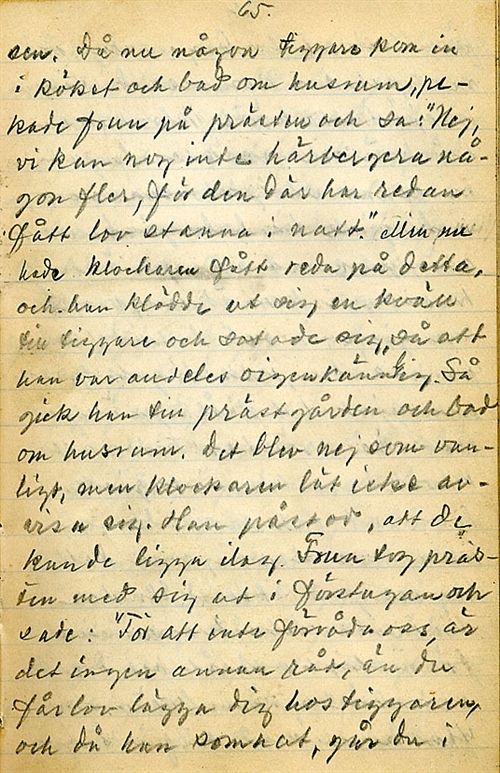 65.
sen. Då nu någon tiggare kom in
i köket och bad om husrum, pe-
kade frun på prästen och sa: "Nej,
vi kan nog inte härbergera nå-
gon fler, för den där har redan
fått lov stanna i natt." Men nu
hade klockaren fått reda på detta,
och han klädde ut sig en kväll
till tiggare och sotade sig, så att
han var alldeles oigenkännlig. Så
gick han till prästgården och bad
om husrum. Det blev nej som van-
ligt, men klockaren lät icke av-
visa sig. Han påstod, att de
kunde ligga ilag. Frun tog präs-
ten med sig ut i förstugan och
sade: "För att inte förråda oss, är
det ingen annan råd, än du
får lov lägga dig hos tiggaren,
och då han somnat, går du i